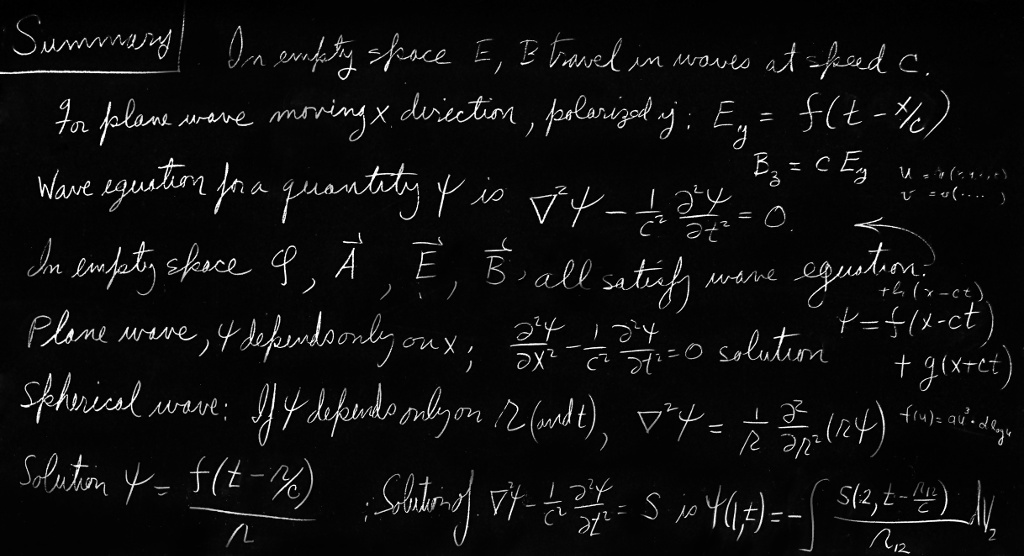 Summary
In empty space E, B travel in waves at speed c.
For plane wave moving x direction, polarized y: E_y = f(t - x/c)
B_z = c E_y
u = u(.....)
v = v(....)
Wave equation for a quantity ψ is ∇²ψ - 1/c² ∂²ψ/∂t² = 0.
In empty space φ, A⃗, E⃗, B⃗, all satisfy wave equation.
+h(x-ct)
Plane wave, ψ depends only on x; ∂²ψ/∂x² - 1/c² ∂²ψ/∂t² = 0 solution ψ = f(x-ct)
+ g(x+ct)
Spherical wave: If ψ depends only on r (and t), ∇²ψ = 1/r ∂²/∂r² (rψ)
f(u) =
Solution ψ = f(t - r/c) / r ; Solution of ∇²ψ - 1/c² ∂²ψ/∂t² = S is ψ(1,t) = -∫ S(2, t - r₁₂/c) / r₁₂ dV₂